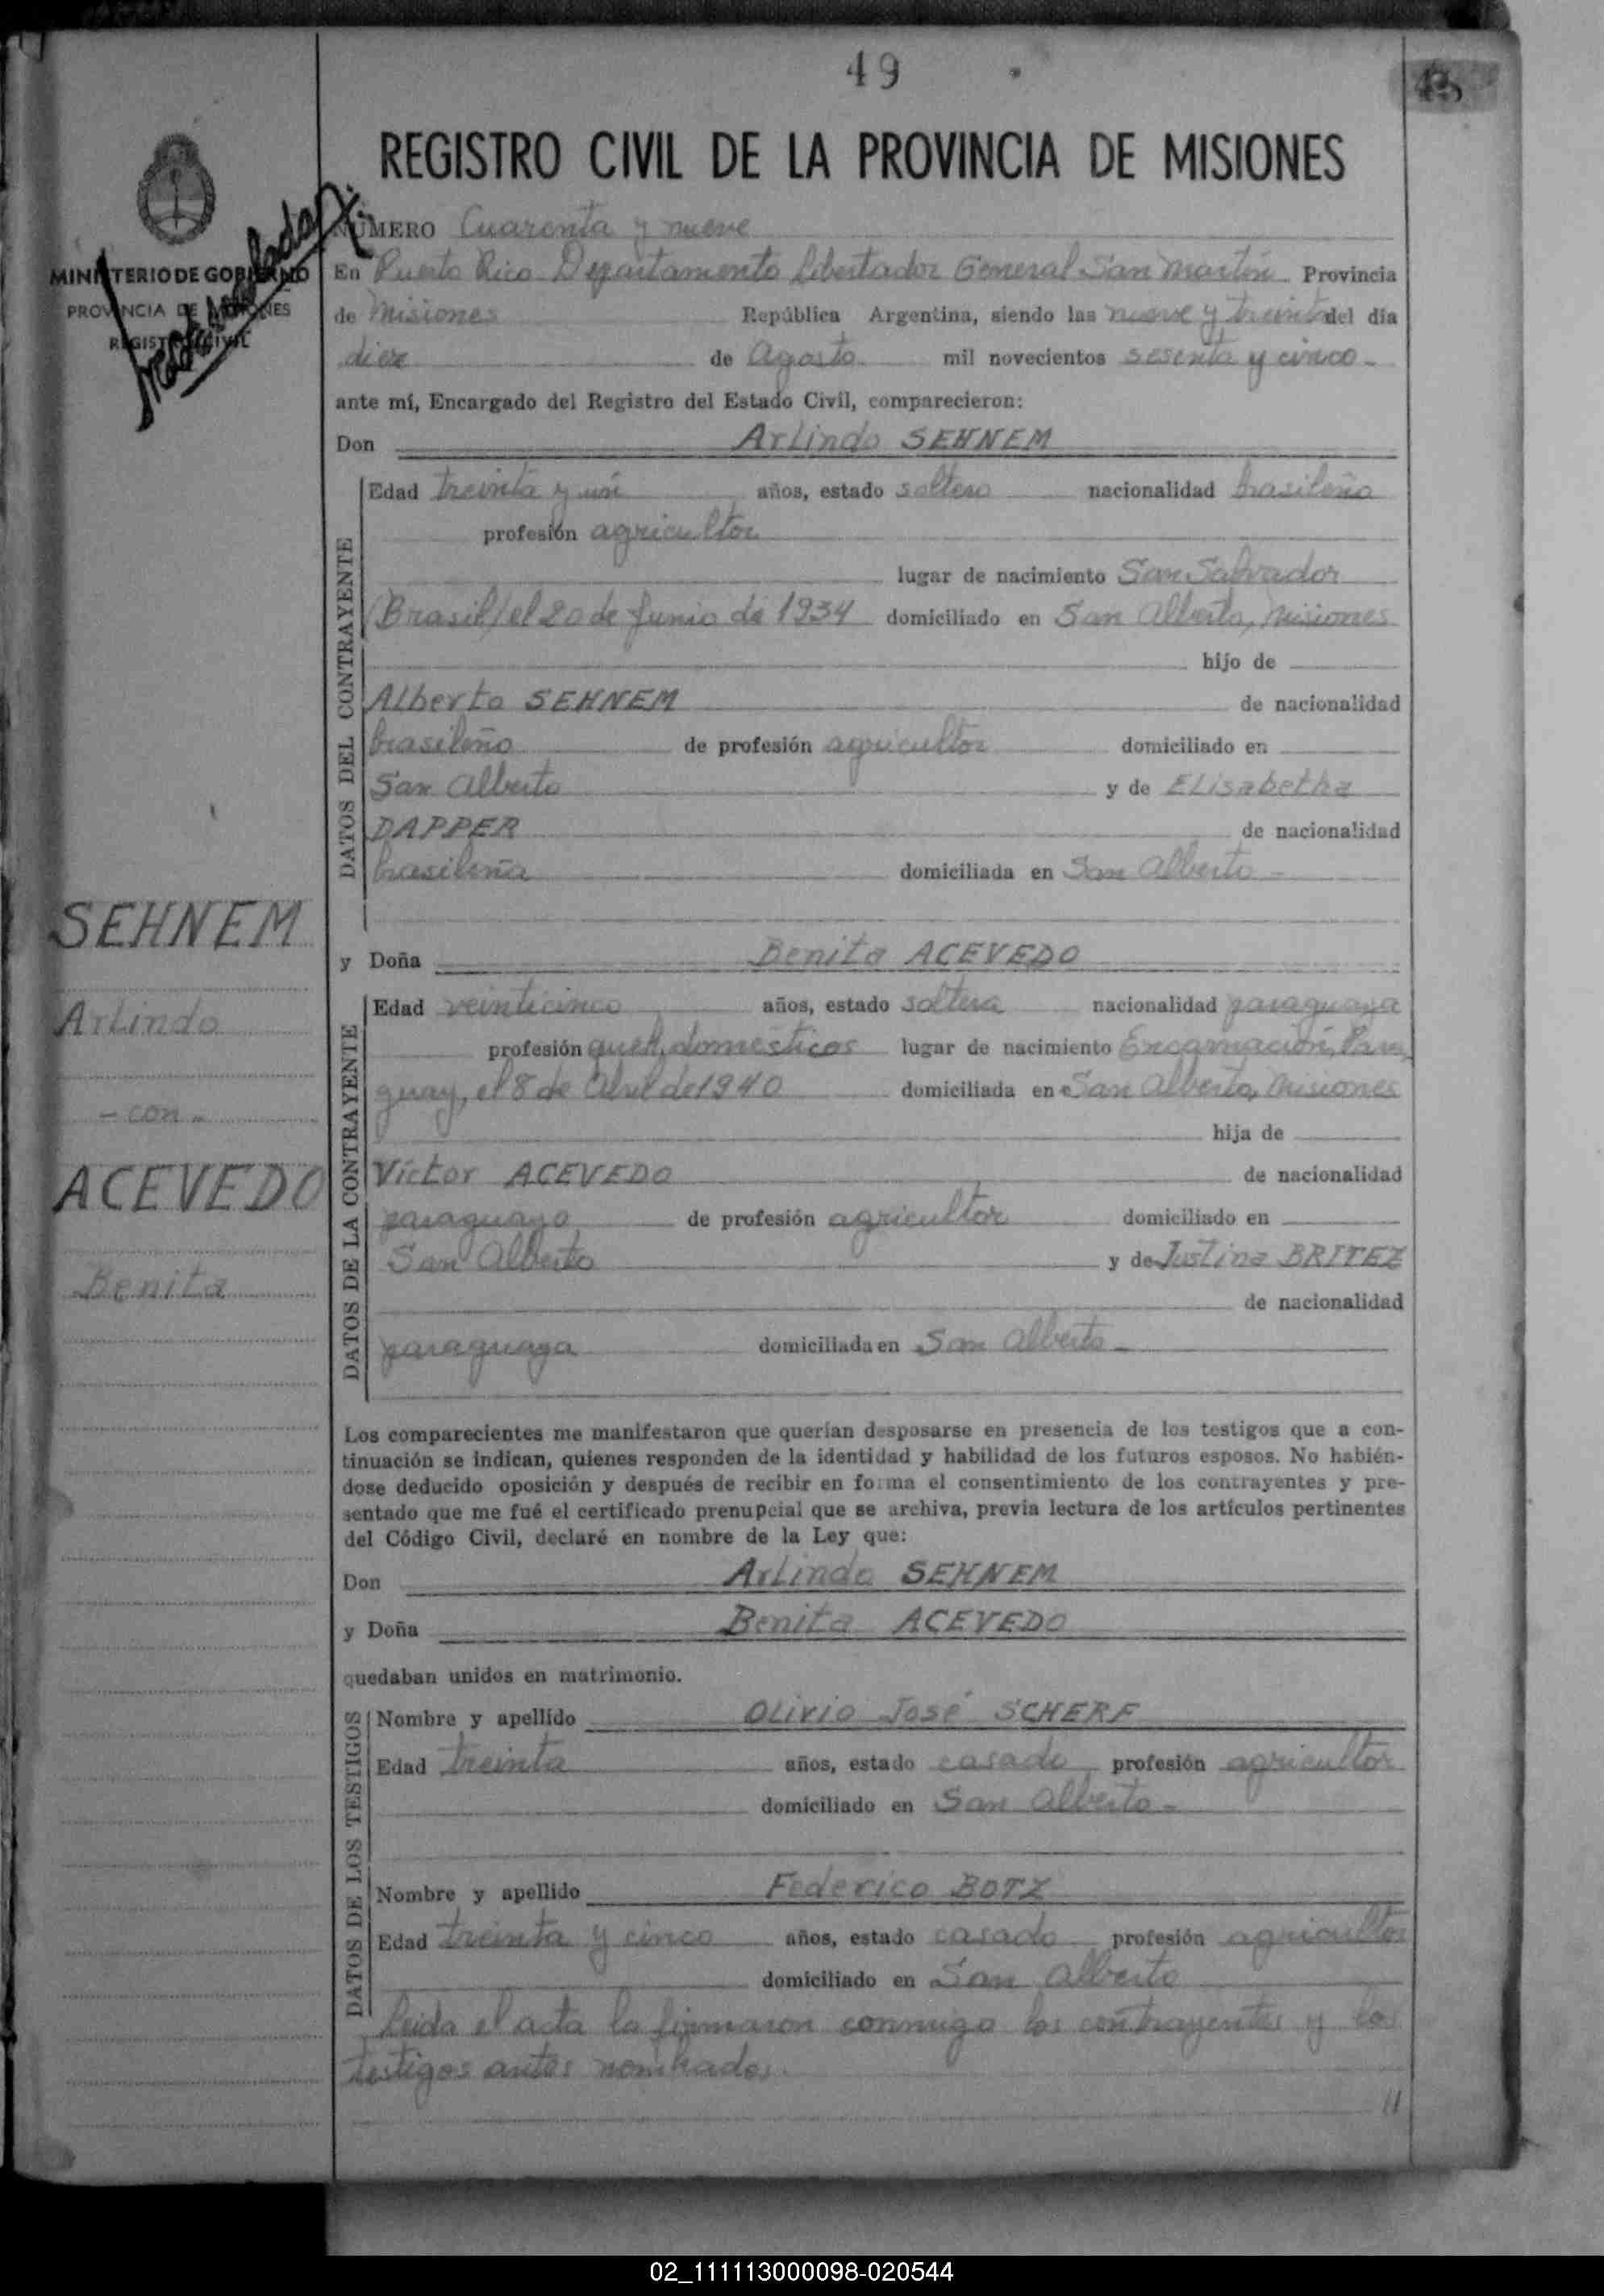 49
REGISTRO CIVIL DE LA PROVINCIA DE MISIONES
NÚMERO Cuarenta y nueve
MINISTERIO DE GOBIERNO
PROVINCIA DE MISIONES
REGISTRO CIVIL
En Puerto Rico Departamento Libertador General San Martín Provincia
de Misiones República Argentina, siendo las nueve y treinta del día
diez de Agosto mil novecientos sesenta y cinco -
ante mí, Encargado del Registro del Estado Civil, comparecieron:
Don Arlindo SEHNEM
DATOS DEL CONTRAYENTE
Edad treinta y un años, estado soltero nacionalidad brasileña
profesión agricultor
lugar de nacimiento San Salvador
(Brasil) el 20 de Junio de 1934 domiciliado en San Alberto, Misiones
hijo de
Alberto SEHNEM de nacionalidad
brasileño de profesión agricultor domiciliado en
San Alberto y de Elisabetha
DAPPER de nacionalidad
brasileña domiciliada en San Alberto -
SEHNEM
Arlindo
- con -
ACEVEDO
Benita
y Doña Benita ACEVEDO
DATOS DE LA CONTRAYENTE
Edad veinticinco años, estado soltera nacionalidad paraguaya
profesión queh. domésticos lugar de nacimiento Encarnación, Para
guay, el 8 de Abril de 1940 domiciliada en San Alberto, Misiones
hija de
Víctor ACEVEDO de nacionalidad
paraguayo de profesión agricultor domiciliado en
San Alberto y de Justina BRITEZ
de nacionalidad
paraguaya domiciliada en San Alberto -
Los comparecientes me manifestaron que querían desposarse en presencia de los testigos que a con-
tinuación se indican, quienes responden de la identidad y habilidad de los futuros esposos. No habién-
dose deducido oposición y después de recibir en forma el consentimiento de los contrayentes y pre-
sentado que me fué el certificado prenupcial que se archiva, previa lectura de los artículos pertinentes
del Código Civil, declaré en nombre de la Ley que:
Don Arlindo SEHNEM
y Doña Benita ACEVEDO
quedaban unidos en matrimonio.
DATOS DE LOS TESTIGOS
Nombre y apellido Olivio José SCHERF
Edad treinta años, estado casado profesión agricultor
domiciliado en San Alberto -
Nombre y apellido Federico BOTZ
Edad treinta y cinco años, estado casado profesión agricultor
domiciliado en San Alberto
Leida el acta la firmaron conmigo los contrayentes y los
testigos antes nombrados.
//
02_111113000098-020544